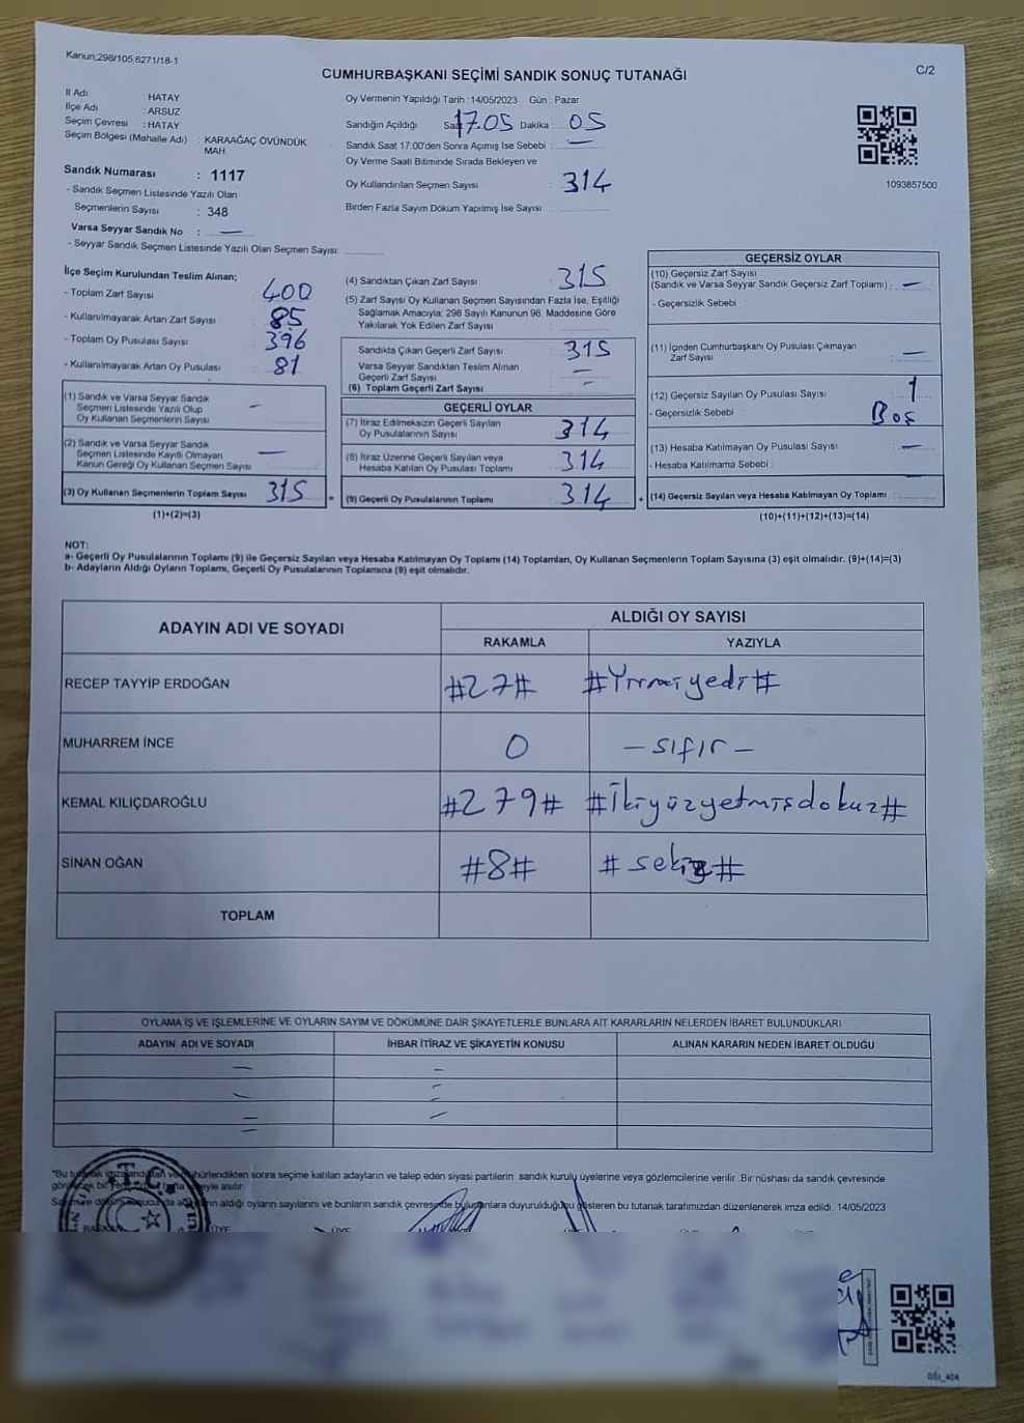 Kanun:298/105,6271/18-1
C/2
CUMHURBAŞKANI SEÇİMİ SANDIK SONUÇ TUTANAĞI
İl Adı : HATAY
İlçe Adı : ARSUZ
Seçim Çevresi : HATAY
Seçim Bölgesi (Mahalle Adı) KARAAĞAÇ ÖVÜNDÜK
MAH.
Sandık Numarası : 1117
- Sandık Seçmen Listesinde Yazılı Olan
Seçmenlerin Sayısı : 348
Varsa Seyyar Sandık No : —
- Seyyar Sandık Seçmen Listesinde Yazılı Olan Seçmen Sayısı:
Oy Vermenin Yapıldığı Tarih :14/05/2023 Gün : Pazar
Sandığın Açıldığı Saat 17.05 Dakika : 05
Sandık Saat 17:00'den Sonra Açımış İse Sebebi : —
Oy Verme Saati Bitiminde Sırada Bekleyen ve
Oy Kullandırılan Seçmen Sayısı : 314
Birden Fazla Sayım Döküm Yapılmış İse Sayısı :
1093857500
İlçe Seçim Kurulundan Teslim Alınan;
- Toplam Zarf Sayısı 400
- Kullanılmayarak Artan Zarf Sayısı 85
- Toplam Oy Pusulası Sayısı 396
- Kullanılmayarak Artan Oy Pusulası 81
(1) Sandık ve Varsa Seyyar Sandık
Seçmen Listesinde Yazılı Olup
Oy Kullanan Seçmenlerin Sayısı —
(2) Sandık ve Varsa Seyyar Sandık
Seçmen Listesinde Kayıtlı Olmayan
Kanun Gereği Oy Kullanan Seçmen Sayısı —
(3) Oy Kullanan Seçmenlerin Toplam Sayısı 315
(1)+(2)=(3)
(4) Sandıktan Çıkan Zarf Sayısı 315
(5) Zarf Sayısı Oy Kullanan Seçmen Sayısından Fazla İse, Eşitliği
Sağlamak Amacıyla; 298 Sayılı Kanunun 98. Maddesine Göre
Yakılarak Yok Edilen Zarf Sayısı
Sandıkta Çıkan Geçerli Zarf Sayısı 315
Varsa Seyyar Sandıktan Teslim Alınan
Geçerli Zarf Sayısı —
(6) Toplam Geçerli Zarf Sayısı —
GEÇERLİ OYLAR
(7) İtiraz Edilmeksizin Geçerli Sayılan
Oy Pusulalarının Sayısı 314
(8) İtiraz Üzerine Geçerli Sayılan veya
Hesaba Katılan Oy Pusulası Toplamı 314
= (9) Geçerli Oy Pusulalarının Toplamı 314
GEÇERSİZ OYLAR
(10) Geçersiz Zarf Sayısı
(Sandık ve Varsa Seyyar Sandık Geçersiz Zarf Toplamı) : —
- Geçersizlik Sebebi :
(11) İçinden Cumhurbaşkanı Oy Pusulası Çıkmayan
Zarf Sayısı —
(12) Geçersiz Sayılan Oy Pusulası Sayısı 1
- Geçersizlik Sebebi Boş
(13) Hesaba Katılmayan Oy Pusulası Sayısı —
- Hesaba Katılmama Sebebi
+ (14) Geçersiz Sayılan veya Hesaba Katılmayan Oy Toplamı
(10)+(11)+(12)+(13)=(14)
NOT:
a- Geçerli Oy Pusulalarının Toplamı (9) ile Geçersiz Sayılan veya Hesaba Katılmayan Oy Toplamı (14) Toplamları, Oy Kullanan Seçmenlerin Toplam Sayısına (3) eşit olmalıdır. (9)+(14)=(3)
b- Adayların Aldığı Oyların Toplamı, Geçerli Oy Pusulalarının Toplamına (9) eşit olmalıdır.
ADAYIN ADI VE SOYADI
ALDIĞI OY SAYISI
RAKAMLA YAZIYLA
RECEP TAYYİP ERDOĞAN #27# #Yirmiyedi#
MUHARREM İNCE 0 — sıfır —
KEMAL KILIÇDAROĞLU #279# #İkiyüzyetmişdokuz#
SİNAN OĞAN #8# #sekiz#
TOPLAM
OYLAMA İŞ VE İŞLEMLERİNE VE OYLARIN SAYIM VE DÖKÜMÜNE DAİR ŞİKAYETLERLE BUNLARA AİT KARARLARIN NELERDEN İBARET BULUNDUKLARI
ADAYIN ADI VE SOYADI İHBAR İTİRAZ VE ŞİKAYETİN KONUSU ALINAN KARARIN NEDEN İBARET OLDUĞU
"Bu sonra seçime katılan adayların ve talep eden siyasi partilerin sandık kurulu üyelerine veya gözlemcilerine verilir. Bir nüshası da sandık çevresinde
aldığı oyların sayılarını ve bunların sandık çevresinde bulunanlara duyurulduğunu gösteren bu tutanak tarafımızdan düzenlenerek imza edildi. 14/05/2023
T.C.
ÜYE ÜYE